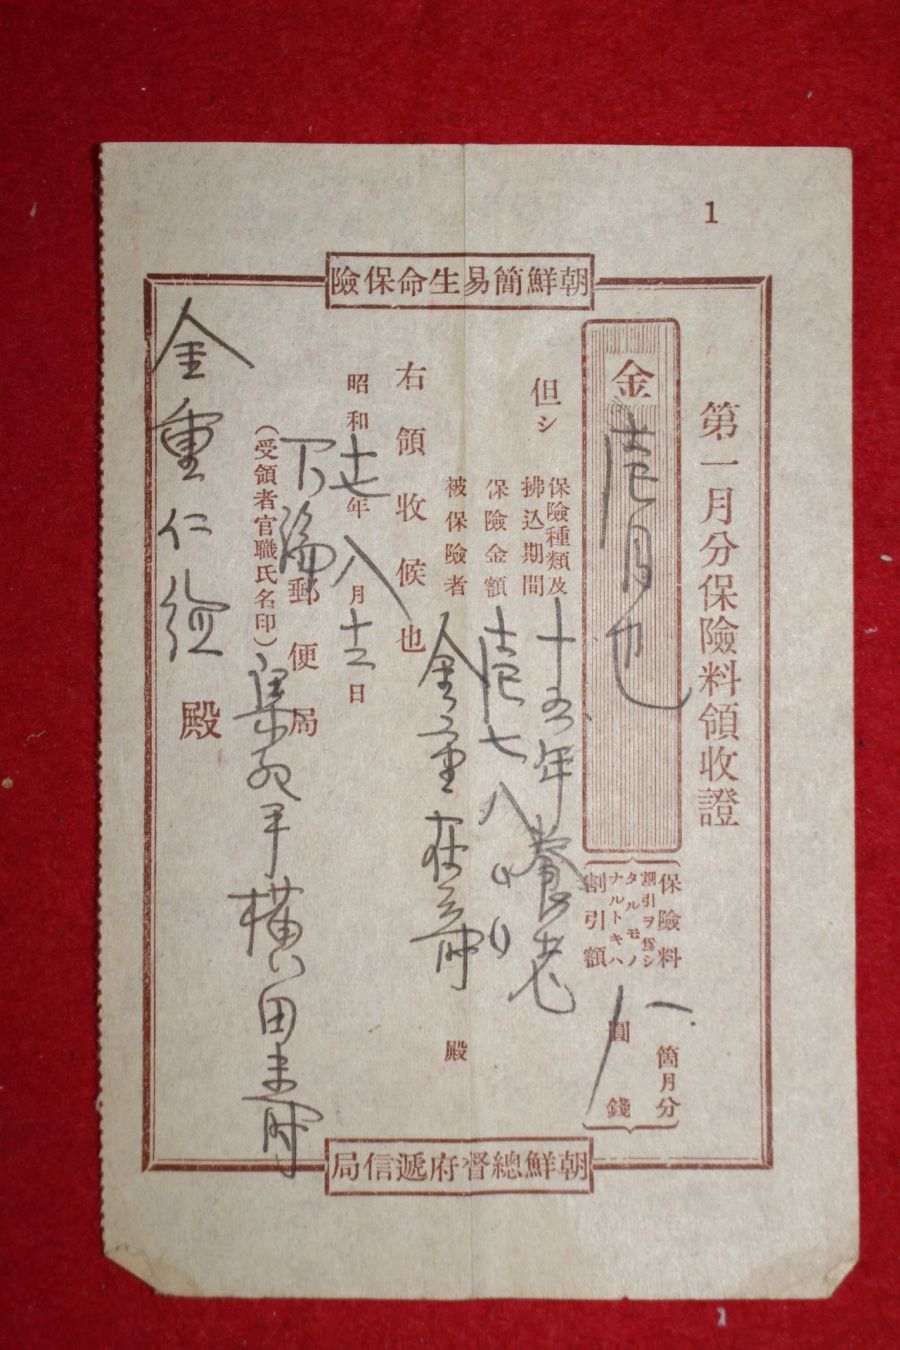 1
朝鮮簡易生命保險
第一月分保險料領收證
金壱円也
保險料
割引ヲ爲シ
タルモノ
ナルトキハ
割引額
一箇月分
圓
錢
但シ
保險種類及
拂込期間
十五年養老
保險金額
壱七八
被保險者
金重
殿
右領收候也
昭和十七年八月十二日
郵便局
(受領者官職氏名印)
横田
金重仁
殿
朝鮮總督府遞信局